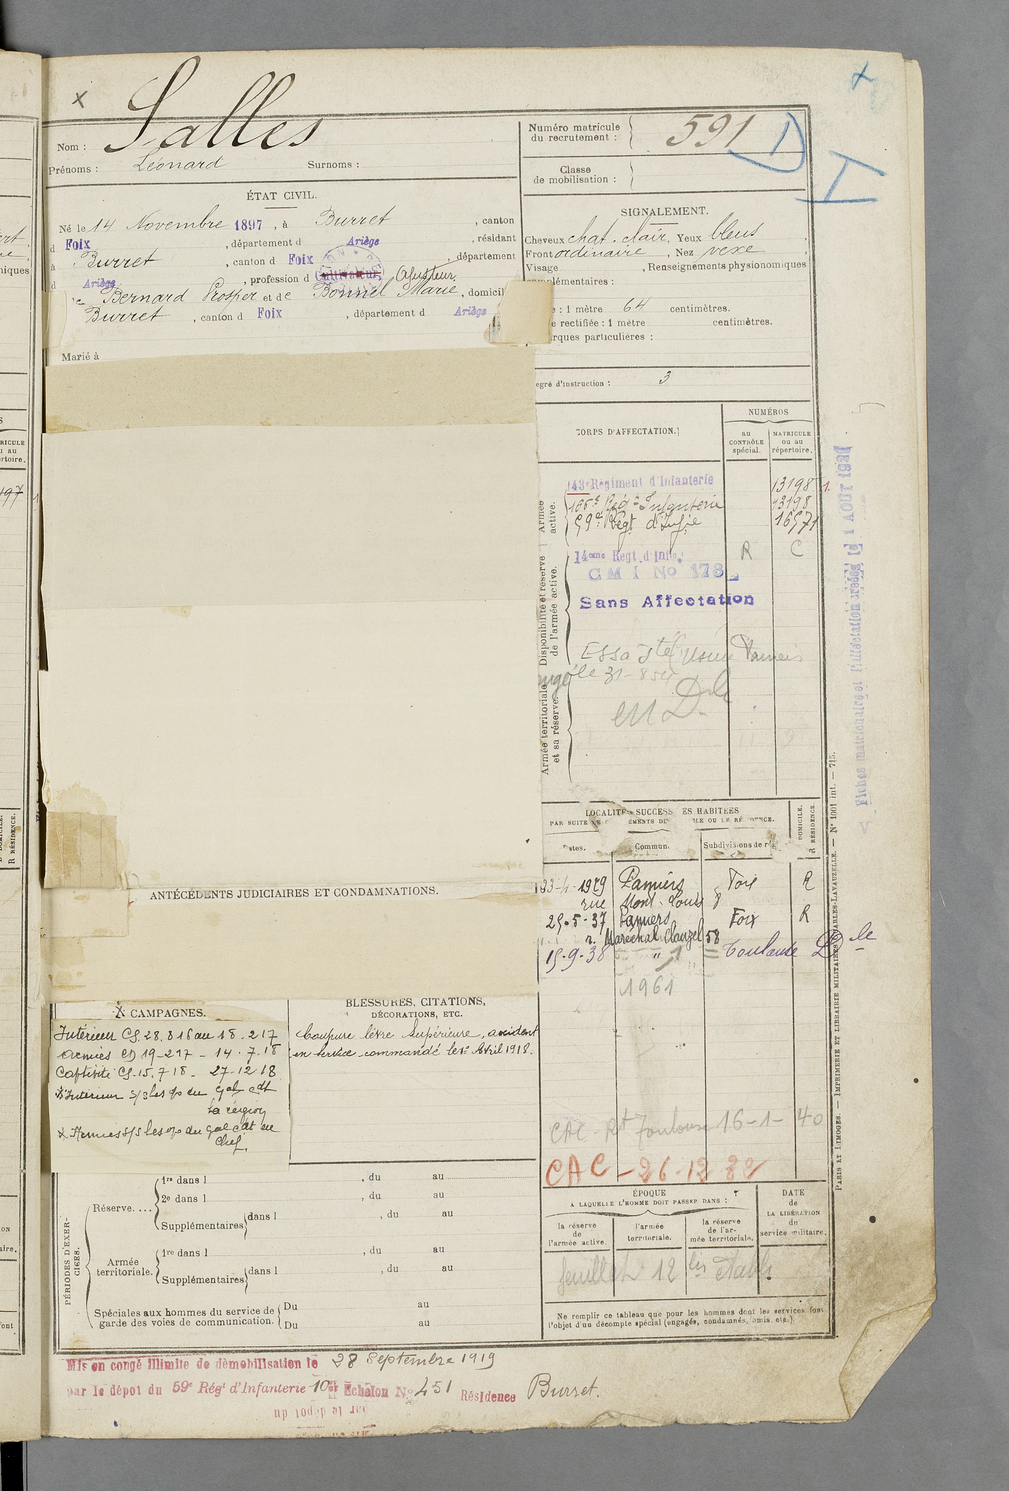 x
Nom : Salles
Prénoms : Léonard Surnoms :
Numéro matricule
du recrutement : 591
D
I
Classe
de mobilisation :
ÉTAT CIVIL.
Né le 14 Novembre 1897, à Burret, canton
d Foix, département d Ariège, résidant
à Burret, canton d Foix, département
d Ariège, profession d Cultivateur, Ajusteur
Bernard Prosper et de Bonnel Marie, domicil
Burret, canton d Foix, département d Ariège
Marié à
SIGNALEMENT.
Cheveux chat. clair, Yeux bleus
Front ordinaire, Nez vexe
Visage , Renseignements physionomiques
mplémentaires :
: 1 mètre 64 centimètres.
e rectifiée : 1 mètre centimètres.
rques particulières :
egré d'instruction : 3
CORPS D'AFFECTATION.
NUMÉROS
AU
CONTRÔLE
spécial.
MATRICULE
OU AU
répertoire.
Armée
active.
143e Régiment d'Infanterie 13198
106e Rég d'Infanterie 13198
59e Régt d'Infie 16571
Disponibilité et réserve
de l'armée active.
14eme Regt. d'Infie. R C
C M I No 178
Sans Affectation
Armée territoriale
et sa réserve.
Usine Pamiers
le 31-8
en D.le
Fiches matriculaire et d'affectation créées le 1 AOUT 1921
LOCALITÉS SUCCESS ES HABITÉES
PAR SUITE
Commun
Subdivisions de r
DOMICILE.
R RÉSIDENCE.
23-4-1929 Pamiers Foix R
rue Mont-Louis 8
25-5-37 Pamiers Foix R
r. Maréchal Clauzel 58
15-9-38 " " Toulouse Dle
1961
CAC - Rt Toulouse 16-1-40
CAC - 26-12 82
ANTÉCÉDENTS JUDICIAIRES ET CONDAMNATIONS.
CAMPAGNES.
Intérieur CS. 28. 8 16 au 18. 2 17
Armées CD 19-2 17 - 14. 7. 18
Captivité CS. 15. 7 18 - 27-12 18
x Intérieur s/s les op du Gal cdt
la région
x Armées s/s les op du Gal cdt en
Chef.
BLESSURES, CITATIONS,
DÉCORATIONS, ETC.
Coupure lèvre supérieure, accident
en service commandé le 1er Avril 1918.
PÉRIODES D'EXER-
CICES.
Réserve....
1re dans l , du au
2e dans l , du au
Supplémentaires dans l , du au
Armée
territoriale.
1re dans l , du au
Supplémentaires dans l , du au
Spéciales aux hommes du service de
garde des voies de communication.
Du au
Du au
ÉPOQUE
A LAQUELLE L'HOMME DOIT PASSER DANS :
la réserve
de
l'armée active.
l'armée
territoriale.
la réserve
de l'ar-
mée territoriale.
DATE
de
LA LIBÉRATION
du
service militaire.
feuillet 12 bis établi
Ne remplir ce tableau que pour les hommes dont les services font
l'objet d'un décompte spécial (engagés, condamnés, omis, etc.).
PARIS ET LIMOGES. — IMPRIMERIE ET LIBRAIRIE MILITAIRES CHARLES-LAVAUZELLE. — N° 1001 int. — 715.
Mis en congé illimité de démobilisation le 28 Septembre 1919
par le dépot du 59e Régt d'Infanterie 10e Echelon No 451 Résidence Burret.